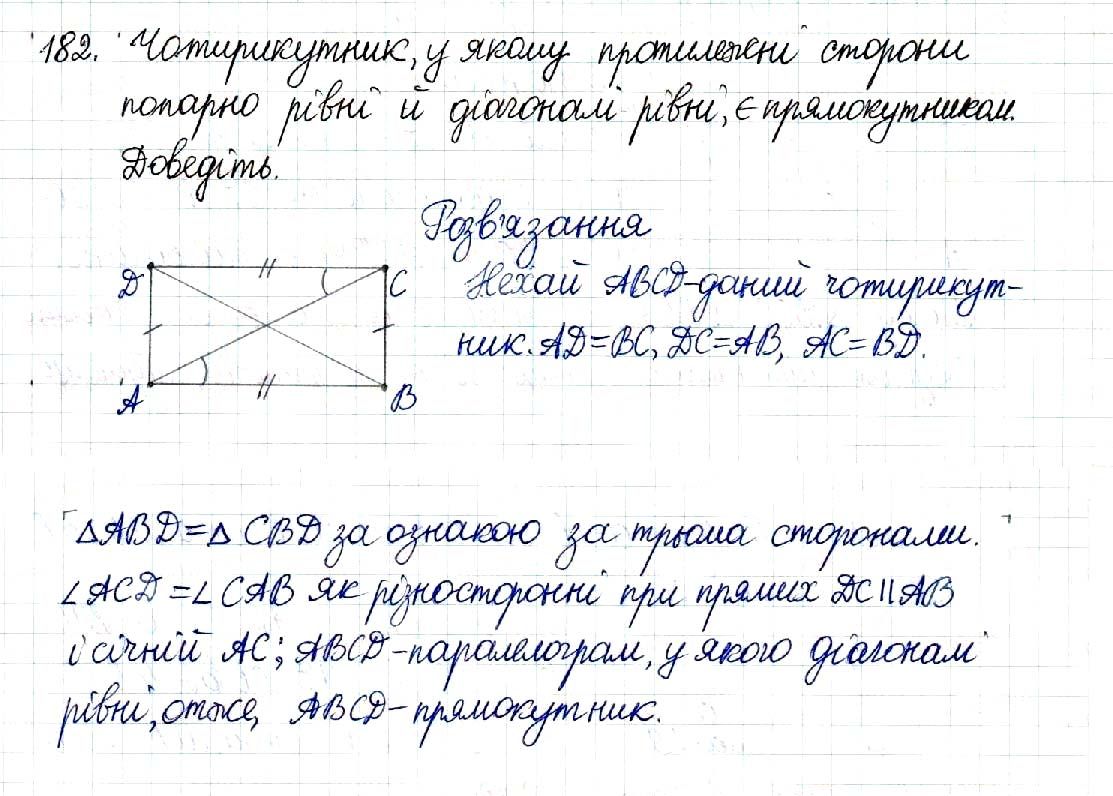 182. Чотирикутник, у якому протилежні сторони
попарно рівні й діагоналі рівні, є прямокутником.
Доведіть.
Розв'язання
D
C
A
B
Нехай ABCD-даний чотирикут-
ник. AD=BC, DC=AB, AC=BD.
△ABD=△ CBD за ознакою за трьома сторонами.
∠ACD=∠CAB як різносторонні при прямих DC||AB
і січній AC; ABCD-паралелограм, у якого діагоналі
рівні, отже, ABCD-прямокутник.